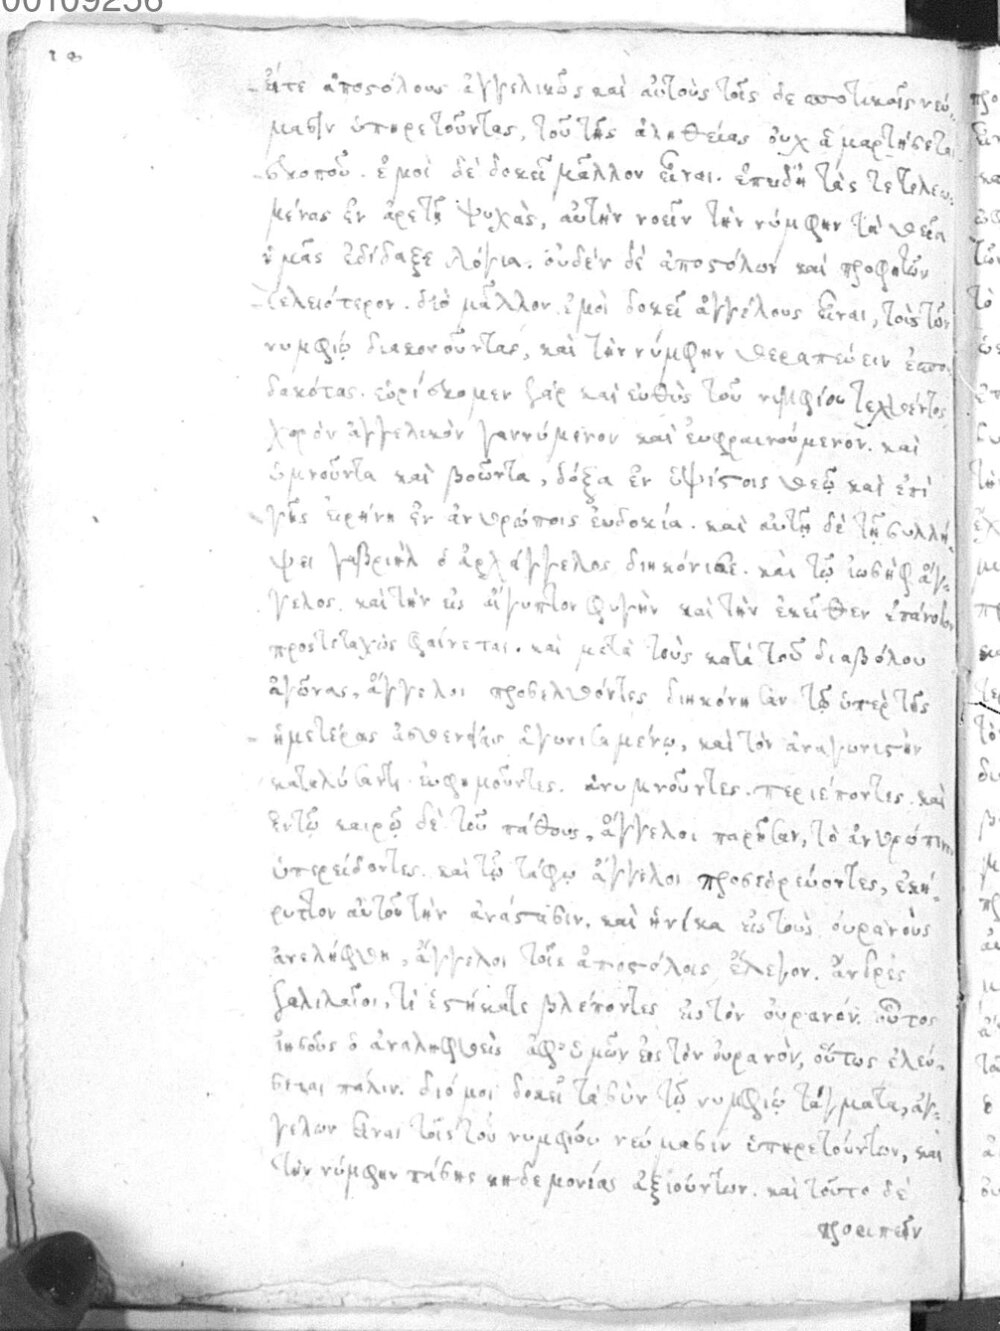 00109256
εἴτε ἀποστόλους ἀγγελικῶς καὶ αὐτοὺς τοῖς δεσποτικοῖς νεύ-
μασιν ὑπηρετοῦντας, τοῦ τῆς ἀληθείας οὐχ ἁμαρτήσεται
σκοποῦ. ἐμοὶ δὲ δοκεῖ μᾶλλον εἶναι. ἐπειδὴ τὰς τετελεω-
μένας ἐν ἀρετῇ ψυχὰς, αὐτὴν νοεῖν τὴν νύμφην τὰ θεῖα
ἡμᾶς ἐδίδαξε λόγια. οὐδὲν δὲ ἀποστόλων καὶ προφητῶν
τελειότερον. διὸ μᾶλλον ἐμοὶ δοκεῖ ἀγγέλους εἶναι, τοὺς τῶν
νυμφίῳ διακονοῦντας, καὶ τὴν νύμφην θεραπεύειν ἐσπου
δακότας. εὑρίσκομεν γὰρ καὶ εὐθὺς τοῦ νυμφίου τεχθέντος
χορὸν ἀγγελικὸν γαννύμενον καὶ εὐφραινούμενον. καὶ
ὑμνοῦντα καὶ βοῶντα, δόξα ἐν ὑψίστοις θεῷ καὶ ἐπὶ
γῆς εἰρήνη ἐν ἀνθρώποις εὐδοκία. καὶ αὐτῇ δὲ τῇ συλλή-
ψει γαβριὴλ ὁ ἀρχάγγελος διηκόνισε. καὶ τῷ ἰωσὴφ ἄγ-
γελος. καὶ τὴν εἰς αἴγυπτον φυγὴν καὶ τὴν ἐκεῖθεν ἐπάνοδον
προστεταχὼς φαίνεται. καὶ μετὰ τοὺς κατὰ τοῦ διαβόλου
ἀγῶνας, ἄγγελοι προσελθόντες διηκόνησαν τῷ ὑπὲρ τῆς
ἡμετέρας ἀσθενείας ἀγωνισαμένῳ, καὶ τὸν ἀνταγωνιστὴν
καταλύσαντι εὐφημοῦντες. ἀνυμνοῦντες. περιέποντες. καὶ
ἐν τῷ καιρῷ δὲ τοῦ πάθους, ἄγγελοι παρῆσαν, τὸ ἀνθρώπινον
ὑπερείδοντες. καὶ τῷ τάφῳ ἄγγελοι προσεδρεύοντες, ἐκή-
ρυττον αὐτοῦ τὴν ἀνάστασιν. καὶ ἡνίκα εἰς τοὺς οὐρανοὺς
ἀνελήφθη, ἄγγελοι τοῖς ἀποστόλοις ἔλεγον. ἄνδρες
γαλιλαῖοι, τί ἑστήκατε βλέποντες εἰς τὸν οὐρανόν. οὗτος
ἰησοῦς ὁ ἀναληφθεὶς ἀφ' ὑμῶν εἰς τὸν οὐρανὸν, οὕτως ἐλεύ-
σεται πάλιν. διό μοι δοκεῖ τὰ σὺν τῷ νυμφίῳ τάγματα, ἀγ-
γέλων εἶναι τοῖς τοῦ νυμφίου νεύμασιν ὑπηρετούντων, καὶ
τὴν νύμφην πάσης κηδεμονίας ἀξιούντων. καὶ τοῦτο δὲ
προειπεῖν